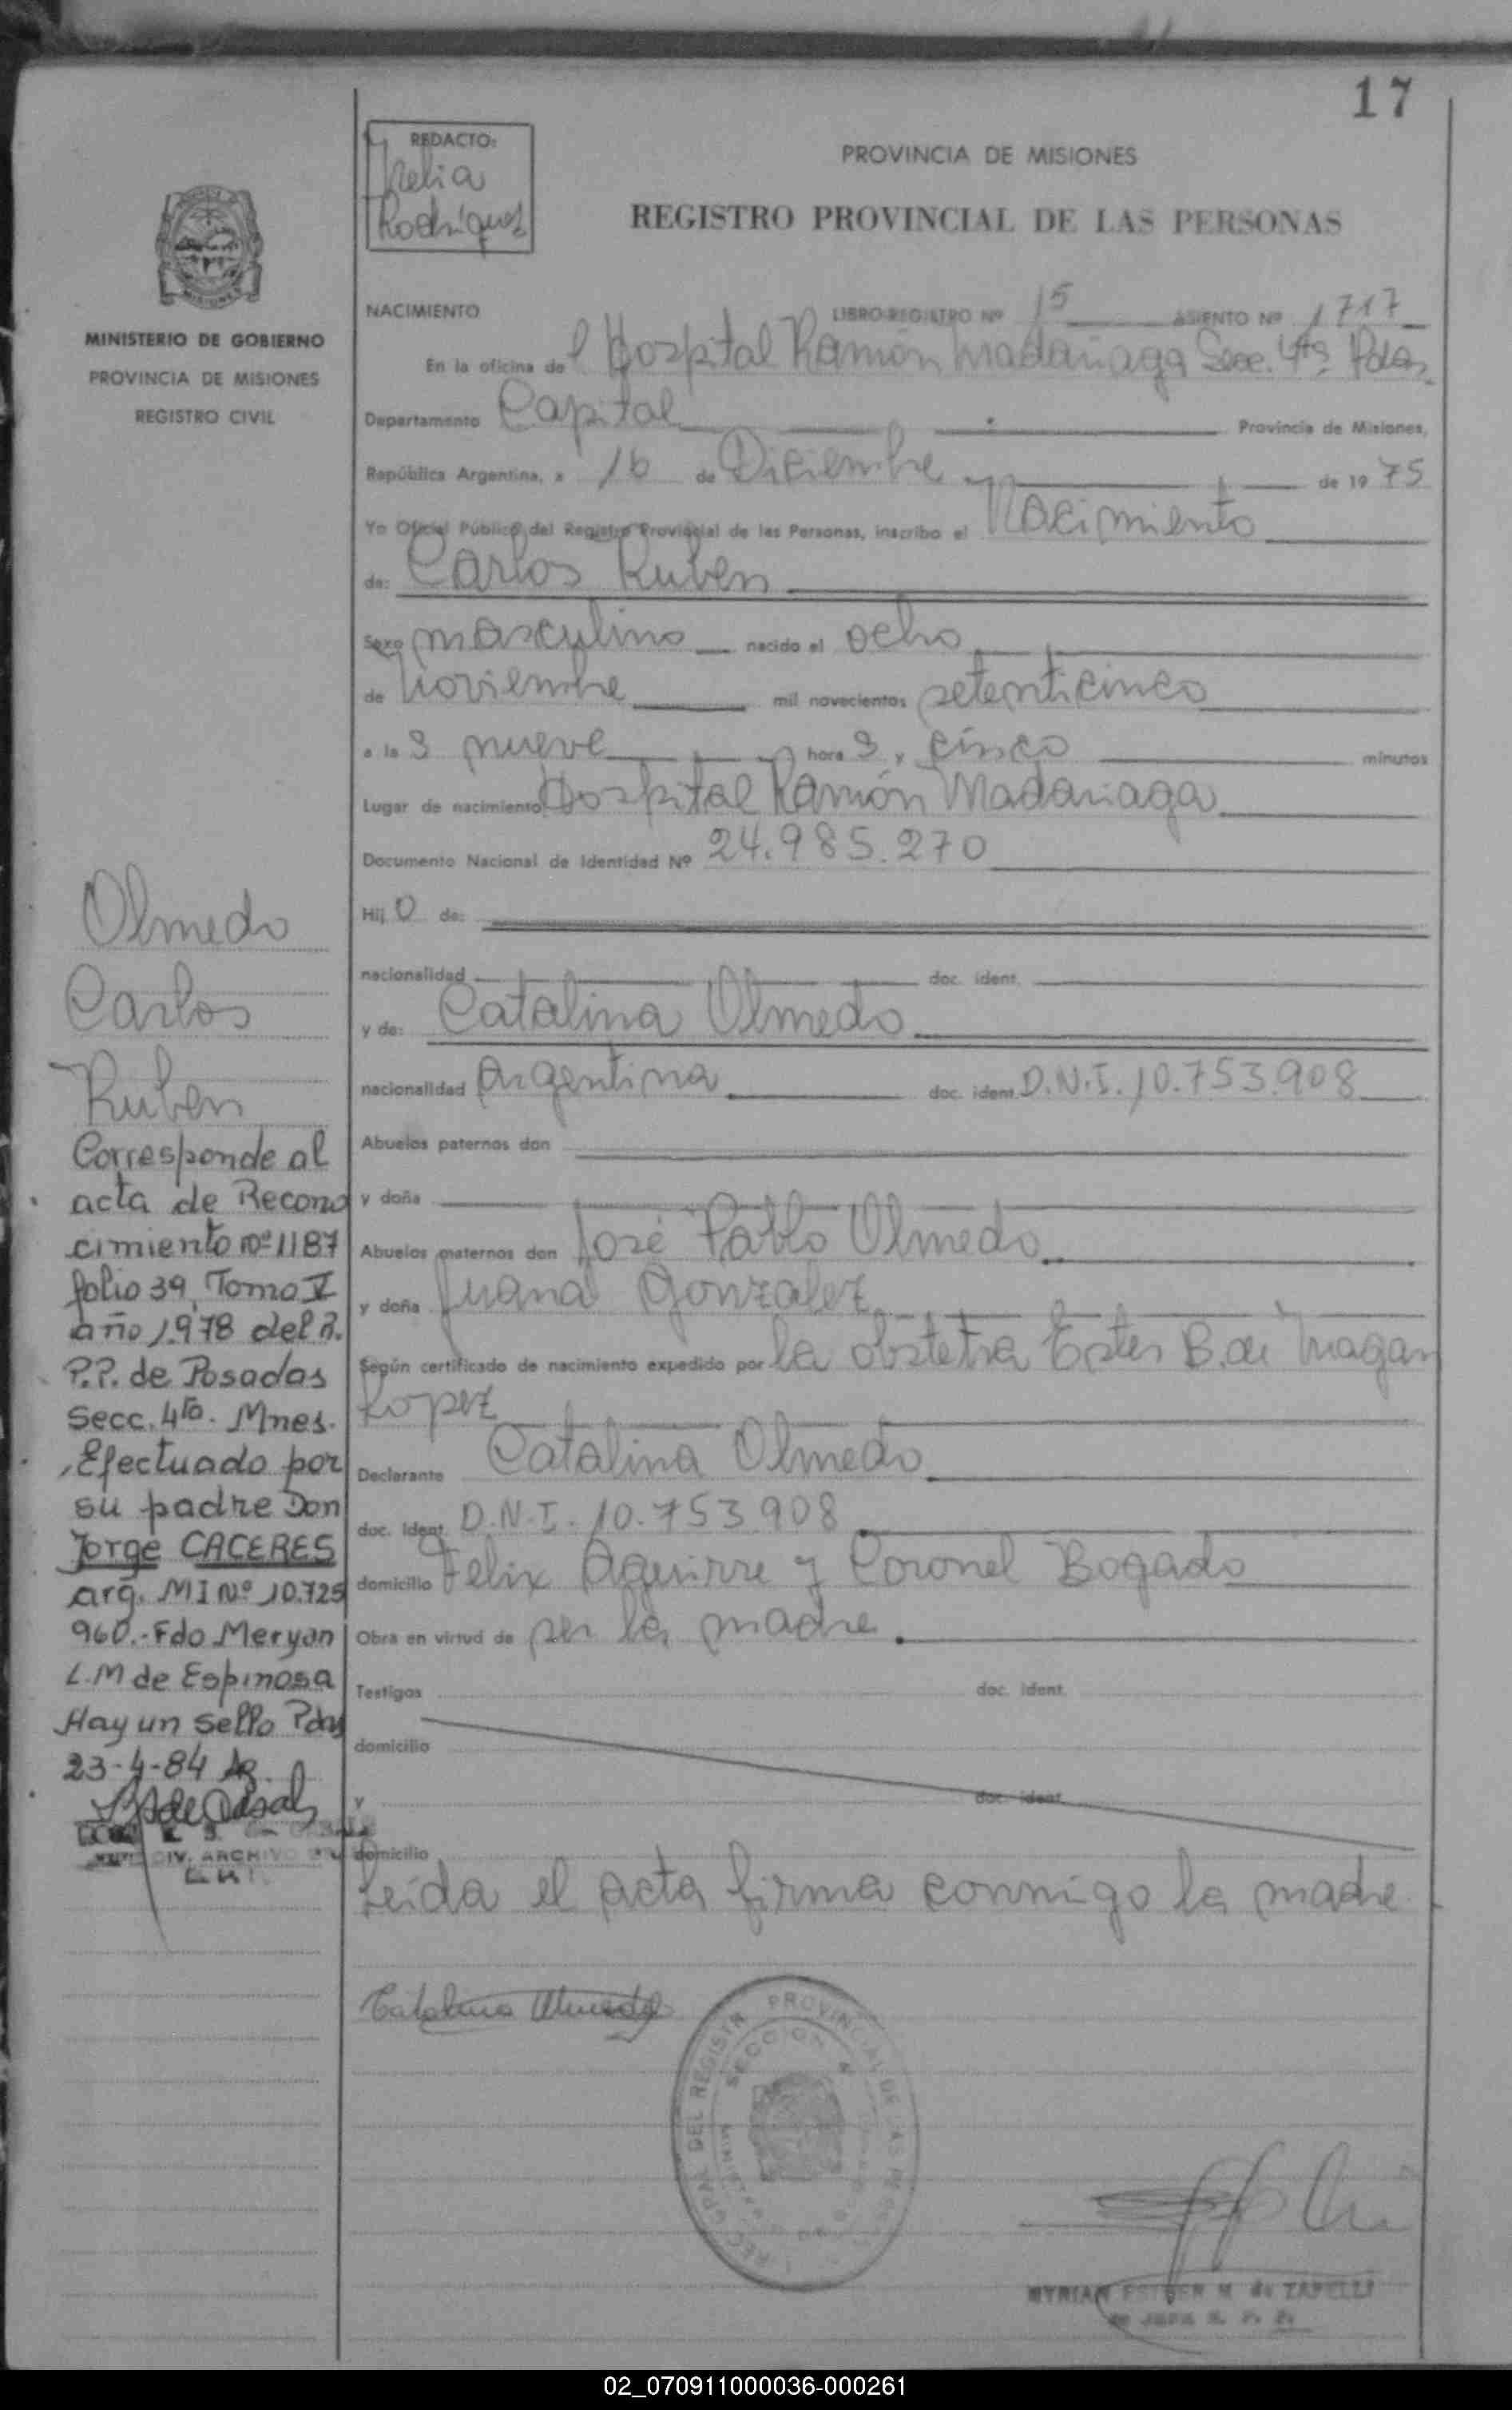 17
REDACTO:
Rodríguez
PROVINCIA DE MISIONES
REGISTRO PROVINCIAL DE LAS PERSONAS
MINISTERIO DE GOBIERNO
PROVINCIA DE MISIONES
REGISTRO CIVIL
NACIMIENTO LIBRO-REGISTRO Nº 15 ASIENTO Nº 1717
En la oficina del Hospital Ramón Madariaga Secc. 4ta Pdas.
Departamento Capital Provincia de Misiones,
República Argentina, a 16 de Diciembre de 1975
Yo Oficial Público del Registro Provincial de las Personas, inscribo el Nacimiento
de: Carlos Ruben
Sexo masculino nacido el ocho
de Noviembre mil novecientos setenticinco
a la s nueve hora s y cinco minutos
Lugar de nacimiento Hospital Ramón Madariaga
Documento Nacional de Identidad Nº 24.985.270
Hij o de:
nacionalidad doc. ident.
y de: Catalina Olmedo
nacionalidad Argentina doc. ident. D.N.I. 10.753.908
Abuelos paternos don
y doña
Abuelos maternos don José Pablo Olmedo
y doña Juana Gonzalez
Según certificado de nacimiento expedido por la obstetra Ester B. de Magan
Lopez
Declarante Catalina Olmedo
doc. Ident. D.N.I. 10.753.908
domicilio Felix Aguirre y Coronel Bogado
Obra en virtud de ser la madre.
Testigos doc. ident.
domicilio
y doc. ident.
domicilio
Leída el acta firma conmigo la madre.
Catalina Olmedo
Olmedo
Carlos
Ruben
Corresponde al
acta de Recono
cimiento nº 1187
folio 39, Tomo V
año 1.978 del R.
P.P. de Posadas
Secc. 4ta. Mnes.
Efectuado por
su padre Don
Jorge CACERES
arg. M I Nº 10.725
960.- Fdo Meryan
L. M de Espinosa
Hay un sello Pdas
23-4-84
DIV. ARCHIVO
PROVINCIAL DE LAS
DEL REGISTR
SECCION 4
MYRIAN ESTHER M. de ZAPELLI
02_070911000036-000261